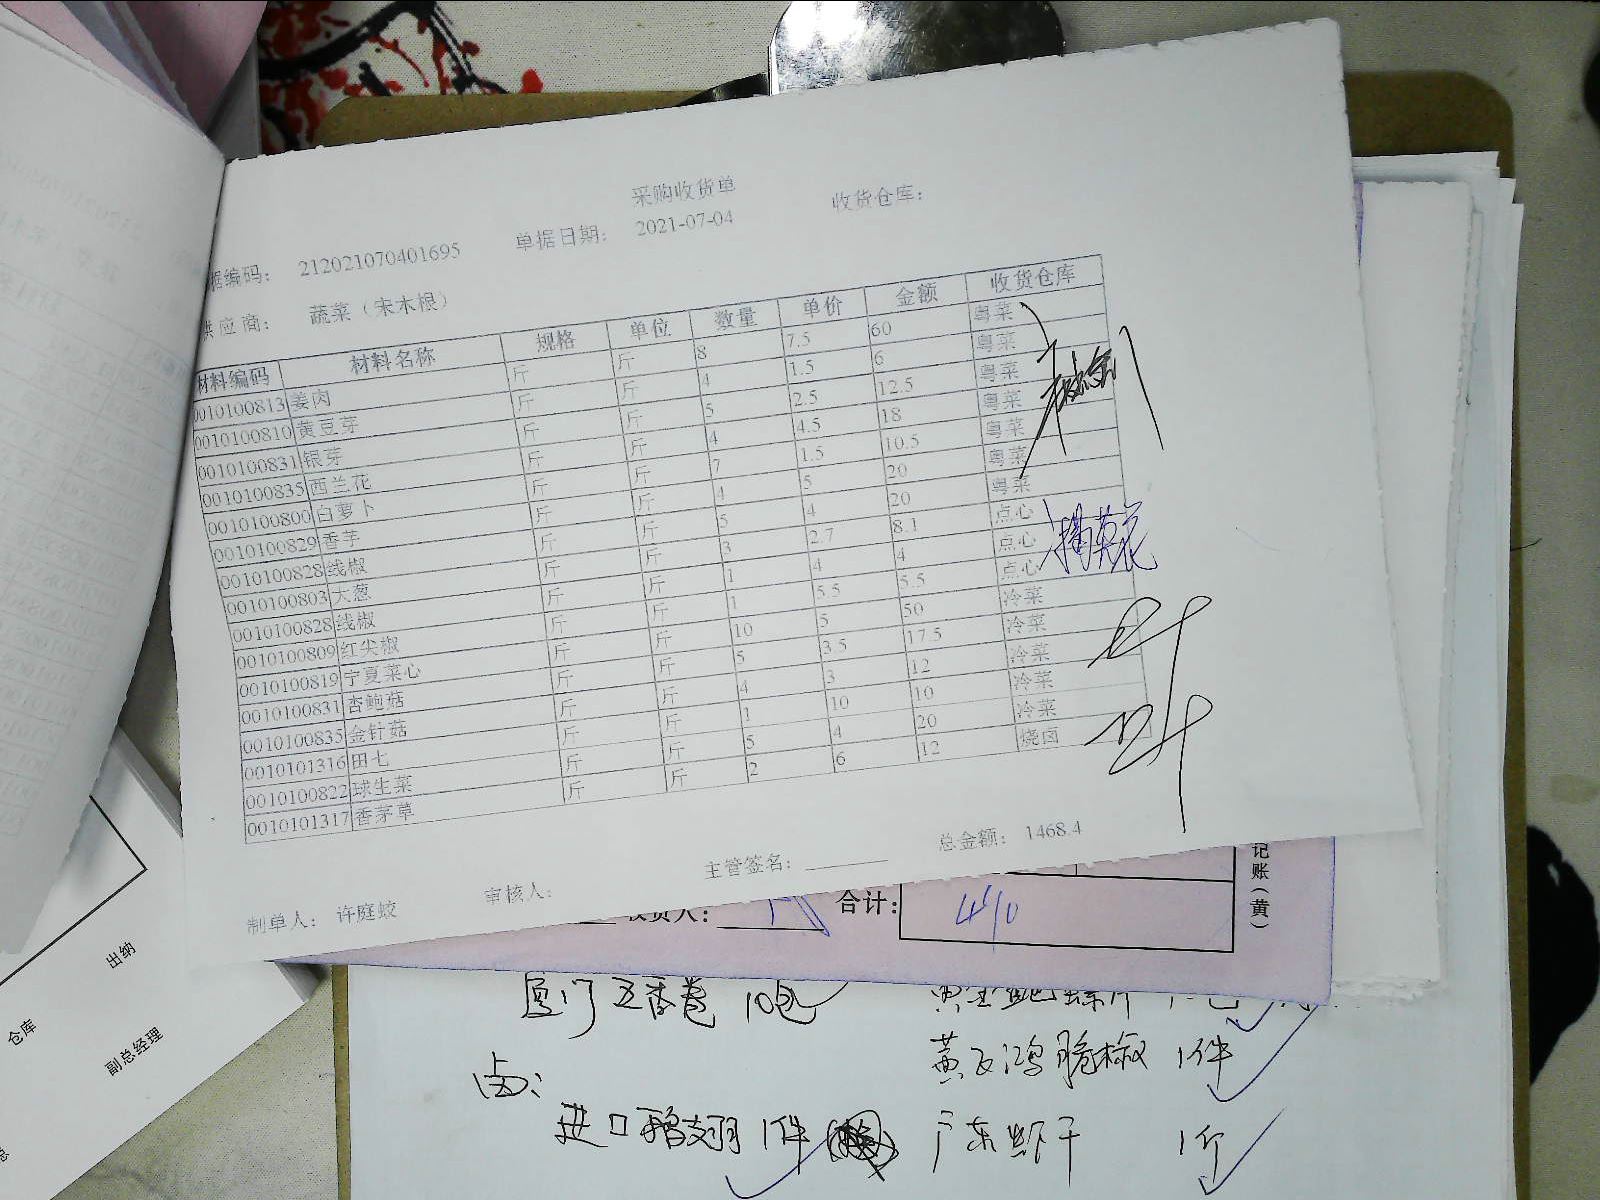 采购收货单
据编码： 212021070401695 单据日期： 2021-07-04 收货仓库：
供应商： 蔬菜（宋木根）
材料编码 材料名称 规格 单位 数量 单价 金额 收货仓库
0010100813 姜肉 斤 斤 8 7.5 60 粤菜
0010100810 黄豆芽 斤 斤 4 1.5 6 粤菜
0010100831 银芽 斤 斤 5 2.5 12.5 粤菜
0010100835 西兰花 斤 斤 4 4.5 18 粤菜
0010100800 白萝卜 斤 斤 7 1.5 10.5 粤菜
0010100829 香芋 斤 斤 4 5 20 粤菜
0010100828 线椒 斤 斤 5 4 20 粤菜
0010100803 大葱 斤 斤 3 2.7 8.1 点心
0010100828 线椒 斤 斤 1 4 4 点心
0010100809 红尖椒 斤 斤 1 5.5 5.5 点心
0010100819 宁夏菜心 斤 斤 10 5 50 冷菜
0010100831 杏鲍菇 斤 斤 5 3.5 17.5 冷菜
0010100835 金针菇 斤 斤 4 3 12 冷菜
0010101316 田七 斤 斤 1 10 10 冷菜
0010100822 球生菜 斤 斤 5 4 20 冷菜
0010101317 香茅草 斤 斤 2 6 12 烧卤
制单人： 许庭蛟 审核人： 主管签名： 总金额： 1468.4
收货人： 合计： 410
记账（黄）
厦门五香卷 10包
黄飞鸿脆椒 1件
卤：
进口鸡翅 1件 广东虾干 1斤
出纳
仓库
副总经理